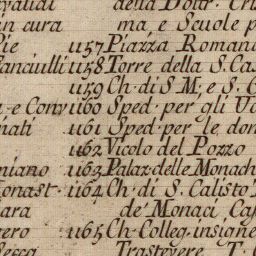 della Dott. Cri
in cura ma e Scuole p
Pie 1157 Piazza Romana
Fanciulli 1158 Torre della S. Cas
1159 Ch. di S. M. e S. G
a e Conv 1160 Sped. per gli Uo
nati 1161 Sped. per le don
1162 Vicolo del Pozzo
niano 1163 Palaz. delle Monach
onast. 1164 Ch. di S. Calisto
ara de' Monaci Cas
ero 1165 Ch. Colleg. insigne
Secca Trastevere T. C